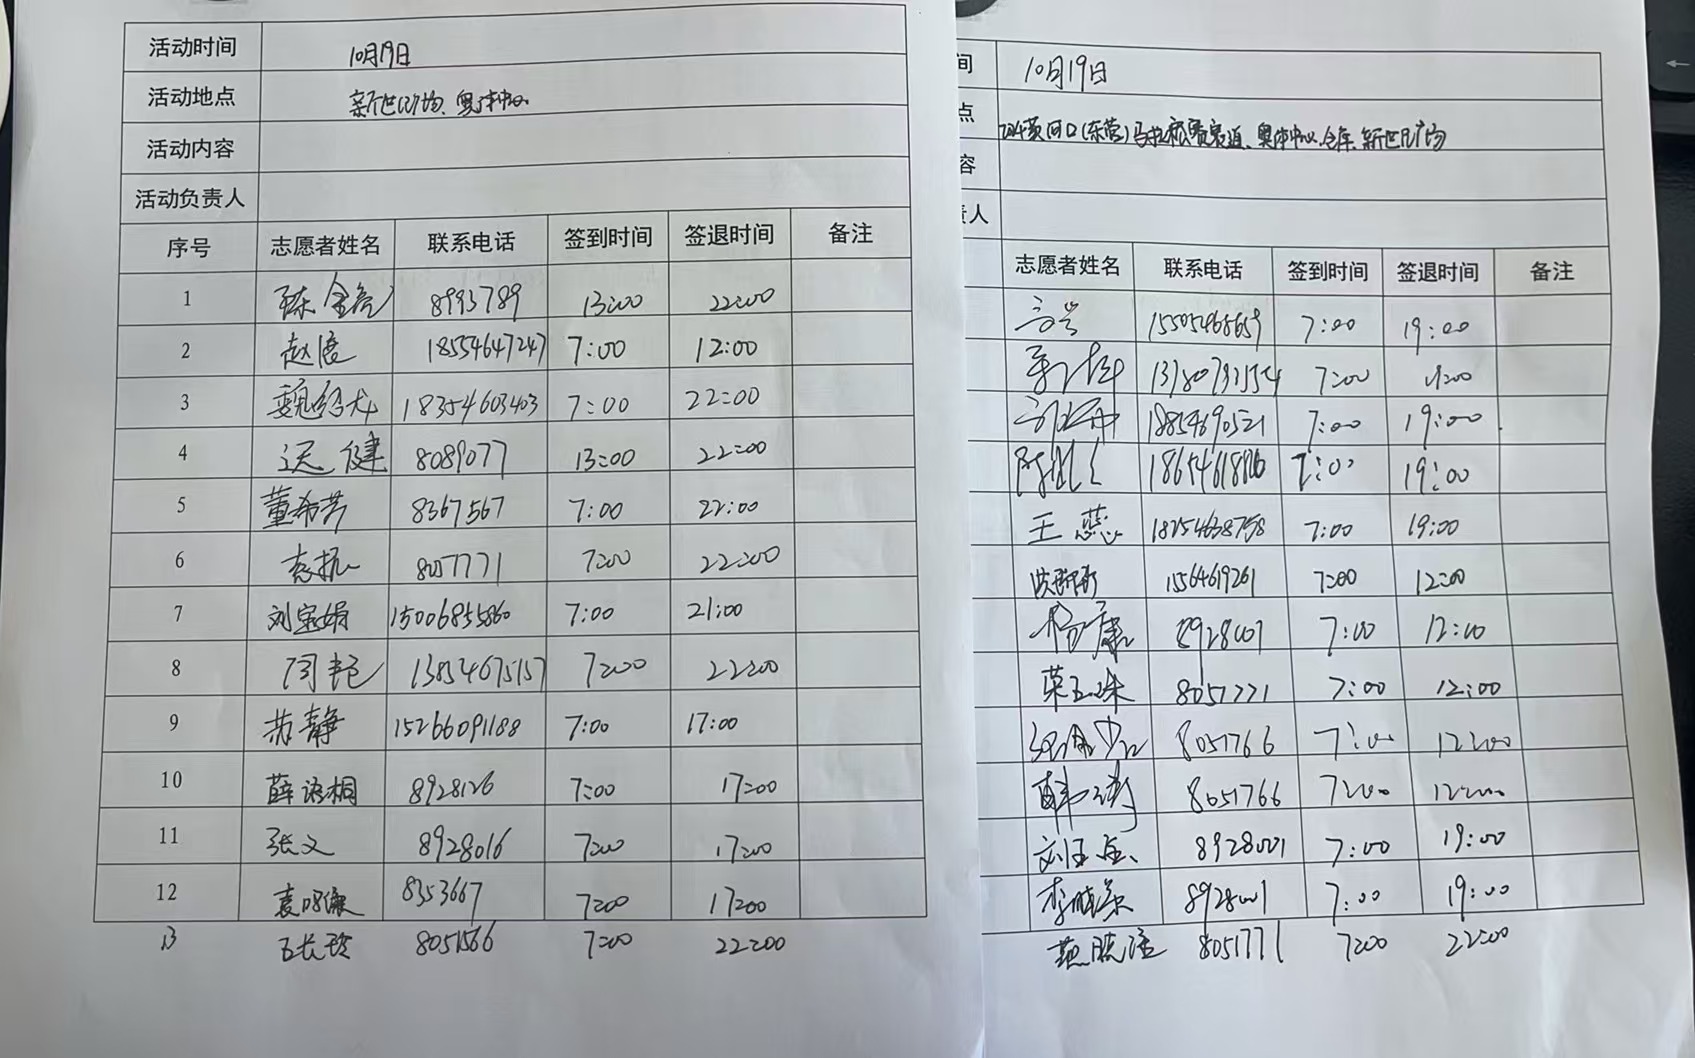 活动时间 10月19日
活动地点 新世纪广场、奥体中心
活动内容
活动负责人
序号 志愿者姓名 联系电话 签到时间 签退时间 备注
1 陈 8993789 13:00 22:00
2 赵 18554647247 7:00 12:00
3 魏绍龙 18354603403 7:00 22:00
4 健 8089077 13:00 22:00
5 董希芳 8367567 7:00 22:00
6 8057771 7:00 22:00
7 刘宝娟 15006855860 7:00 21:00
8 闫艳 13854675157 7:00 22:00
9 苏静 15266091188 7:00 17:00
10 薛语桐 8928126 7:00 17:00
11 张文 8928016 7:00 17:00
12 袁 8353667 7:00 17:00
13 8051566 7:00 22:00
间 10月19日
点 2024黄河口(东营)马拉松赛赛道、奥体中心、仓库、新世纪广场
容
责人
志愿者姓名 联系电话 签到时间 签退时间 备注
15505468659 7:00 19:00
7:00 19:00
18854690521 7:00 19:00
7:00 19:00
王蕊 18254638758 7:00 19:00
7:00 12:00
杨康 8928001 7:00 12:00
荣玉珠 8051771 7:00 12:00
8051766 7:00 12:00
8051766 7:00 12:00
刘 8928001 7:00 19:00
李晓 8928001 7:00 19:00
范 8051771 7:00 22:00